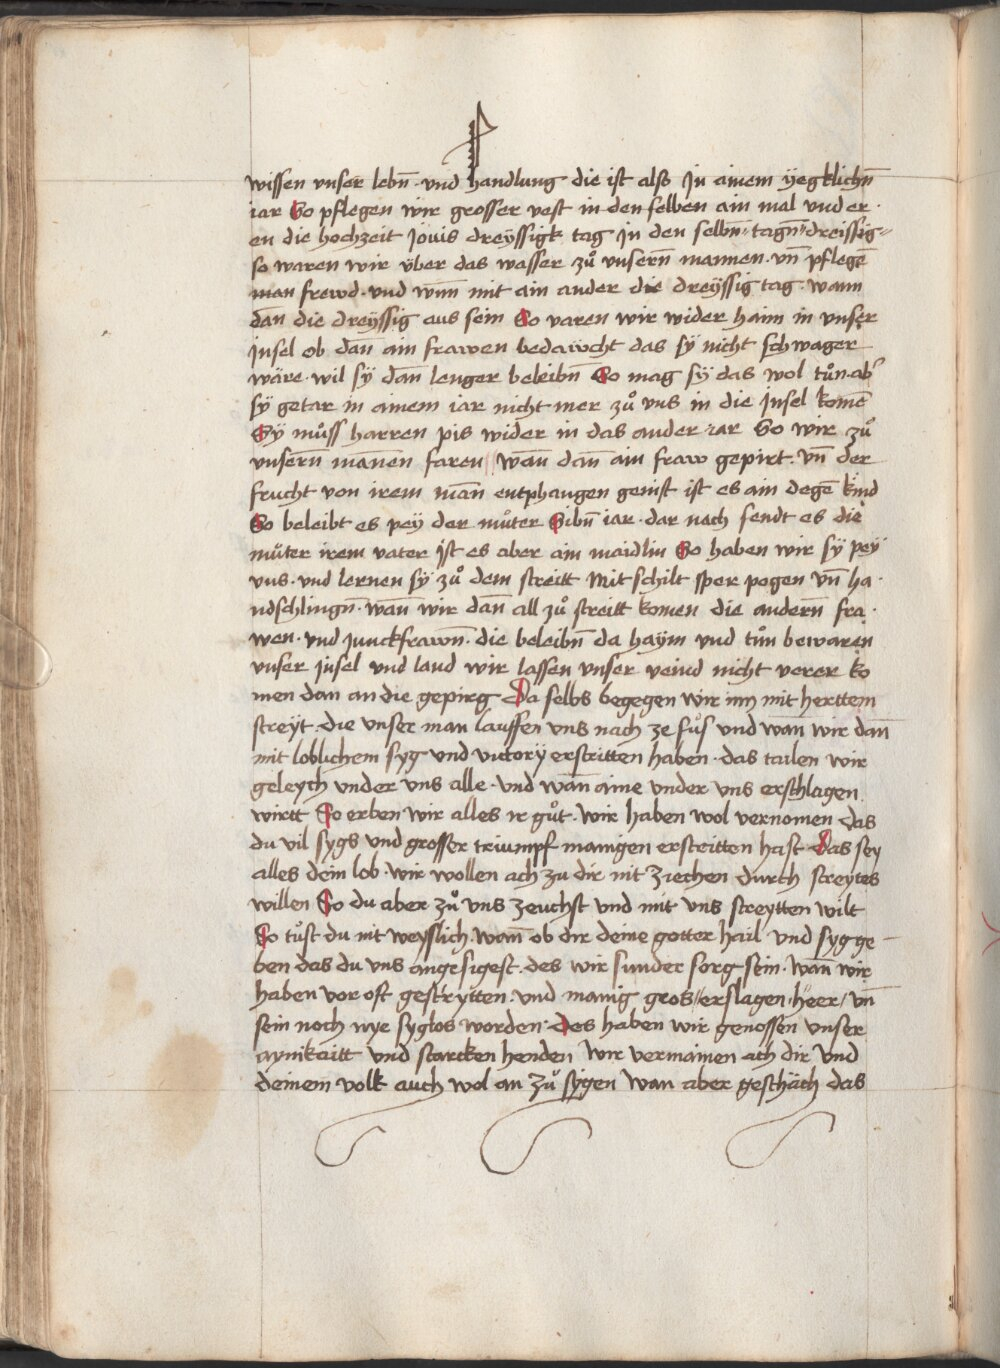 wissen unser lebn̄ · und handlung die ist also Jn ainem yegklichn̄
iar So pflegen wir grosser vest in den selben ain mal und er ·
en die hochzeit Jouis dreyssigk tag Jn den selbn̄ tagn̄ dreissig
so waren wir über das wasser zů unsern̄ mannen · vn̄ pflegē
man frewd · und wnn̄ mit ain ander die dreyssig tag · wann
dan̄ die dreyssig aus sein So varen wir wider haim in unser
Jnsel ob dan̄ ain frawen bedawcht das sy nicht schwager
wäre · wil sy dan̄ lenger beleibn̄ So mag sy das wol tůn · ab͛
sy getar in ainem iar nicht mer zů uns in die Jnsel komē
Sy můss harren pis wider in das ander iar So wir zů
unsern̄ man̄en faren wan̄ dan̄ ain fraw gepirt · vn̄ der
frucht von irem man̄ entphangen genist ist es ain degē kind
So beleibt es pey der můter Sibn̄ iar · dar nach sendt es die
můter irem vater Jst es aber ain maidlin So haben wir sy pey
uns · und lernen sy zů dem streitt Mit schilt sper pogen vn̄ ha ·
ndschlingn̄ · wan̄ wir dan̄ all zů streitt komen die andern̄ fra ·
wen · und junckfrawn̄ · die beleibn̄ da haym und tůn bewaren
unser jnsel und land wir lassen unser veind nicht verer ko
men dan an die gepirg Da selbs begegen wir im mit herttem
streyt · die unser man lauffen uns nach ze fůs und wan̄ wir dan̄
mit loblichem syg und victory erstritten haben · das tailen wir
geleych under uns alle · und wan̄ aine under uns erschlagen
wirtt So erben wir alles ir gůt · wir haben wol vernomen das
du vil sygs und grosser triumpf manigen erstritten hast Das sey
alles dein lob · wir wollen ach zu dir nit ziechen durch streytes
willen So du aber zů uns zeuchst und mit uns streytten wilt
So tůst du nit weyslich · wan̄ ob dir deine gotter hail und syg ge
ben das du uns angesigest · des wir sunder sorg sein · wan̄ wir
haben vor oft gestrytten · und manig gros erslagen heer / vn̄
sein noch nye syglos worden · Des haben wir genossen unser
aynikaitt und starcken henden wir vermainen ach dir und
deinem volk auch wol an zů sygen wan aber geschäch das